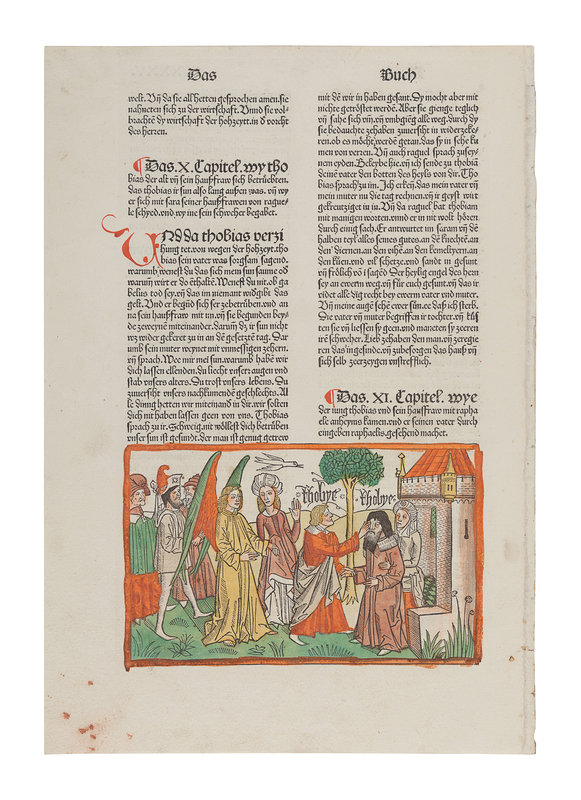 Das
Buch
welt. Vň da sie all hetten gesprochen amen. sie
nahneten sich zu der wirtschaft. Vnnd sie vol-
brachte dy wirtschaft der hohzeyt. in ď vorcht
des herren.
Das. X. Capitel. wy tho
bias der alt vň sein haußfraw sich betrůbten.
das thobias ir sun also lang aussen was. vň wy
er sich mit sara seiner haußfrawen von rague-
le schyed. vnd wy ine sein schweher begabet.
VNd da thobias verzi
hung tet. von wegen der hohzeyt. tho
bias sein vater was sorgsam sagend.
warumb wenest du das sich mein sun saume oď
warumb wirt er do enthalten. Wenest du nit. ob ga
belus tod sey. vň das im niemant widgibt das
gelt. Vnd er begund sich ser zebetrůben. vnd an
na sein haußfraw mit im. vň sie begunden bey-
de zeweynē miteinander. Darum dz ir sun nicht
wz wider gekeret zu in an dē gesetztē tag. Dar
umb sein muter weynet mit vnmessigen zehern.
vň sprach. Wee mir mein sun. warumb habē wir
dich lassen ellenden. du liecht vnser augen vnd
stab vnsers alters. Du trost vnsers lebens. Du
zuuersiht vnsers nachkumendē geschlechts. Al
le ding hetten wir miteinand in dir. wir solten
dich nit haben lassen geen von vns. Thobias
sprach zu ir. Schweig. nit wöllest dich betrůben
vnser sun ist gesundt. der man ist genug getrew
mit dē wir in haben gesant. Dy mocht aber mit
nichte getröstet werdē. Aber sie gienge teglich
vň sahe sich vm. vň vmbgieg alle weg. durch dy
sie bedauchte zehaben zuuersiht in widerzeke-
ren. ob es möcht werde getan. das sy in sehe kū
men von verren. Vň auch raguel sprach zu sey-
nem eyden. Beleybe hie. vň ich sende zu thobia
deine vater den botten des heyls von dir. Tho
bias sprach zu im. Ich erkeň. das mein vater vň
mein muter nu die tag rechnen. vň ir geyst wirt
gekreutziget in in. Vň da raguel bat thobiam
mit manigen worten. vnnd er in nit wolt hören
durch einig sach. Er antwurtet im saram vň dē
halben teyl alles seines gutes. an dē knechtē. an
den diernen. an den vihē. an den kemeltyern. an
den kůen. vnd vil schetze. vnd sandt in gesunt
vň frölich vō i sagēd. Der heylig engel des hern
sey an ewerm weg. vň fůr euch gesunt. vň das ir
videt alle dig recht bey ewerm vater vnd muter.
Vň meine augē sehē ewer sůn. ee daß ich sterb.
Die vater vň muter begriffen ir tochter. vň kůs
ten sie vň liessen sy geen. vnd maneten sy zeeren
irē schweher. Lieb zehaben den man. vň zeregie
ren das ingesinde. vň zubesorgen das hauß vň
sich selb zeerzeygen vnstreflich.
Das. XI. Capitel. wye
der iung thobias vnd sein haußfraw mit rapha
ele anheyms kamen. vnd er seinen vater durch
eingeben raphaelis. gesehend machet.
thobye
thobye